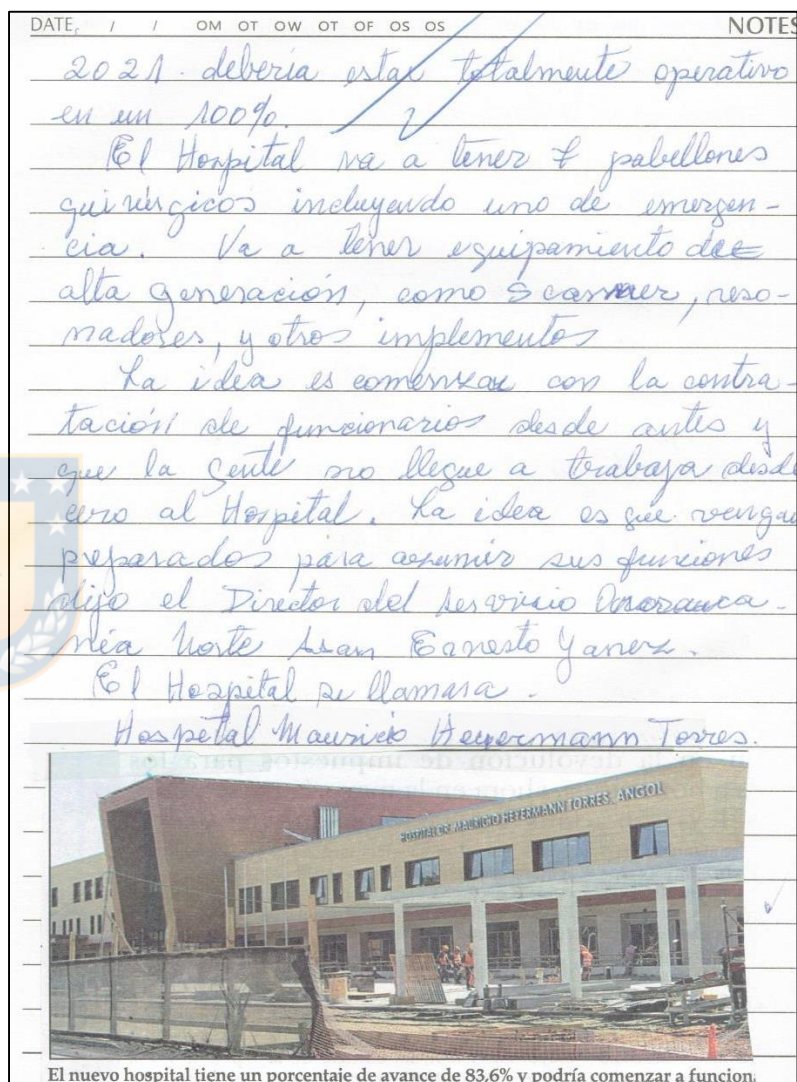 DATE, / / OM OT OW OT OF OS OS NOTES
2021. debería estar totalmente operativo
en un 100%.
El Hospital va a tener 7 pabellones
quirúrgicos incluyendo uno de emergen-
cia. Va a tener equipamiento de
alta generación, como Scanner, reso-
nadores, y otros implementos
La idea es comenzar con la contra-
tación de funcionarios desde antes y
que la gente no llegue a trabaja desde
cero al Hospital. La idea es que vengan
preparados para asumir sus funciones
dijo el Director del Servicio Arauca-
nía Norte Ernesto Yanez.
El Hospital se llamara.
Hospital Mauricio Heyermann Torres.
la devolución de impuestos para los
HOSPITAL DR. MAURICIO HEYERMANN TORRES, ANGOL
El nuevo hospital tiene un porcentaje de avance de 83,6% y podría comenzar a funcion